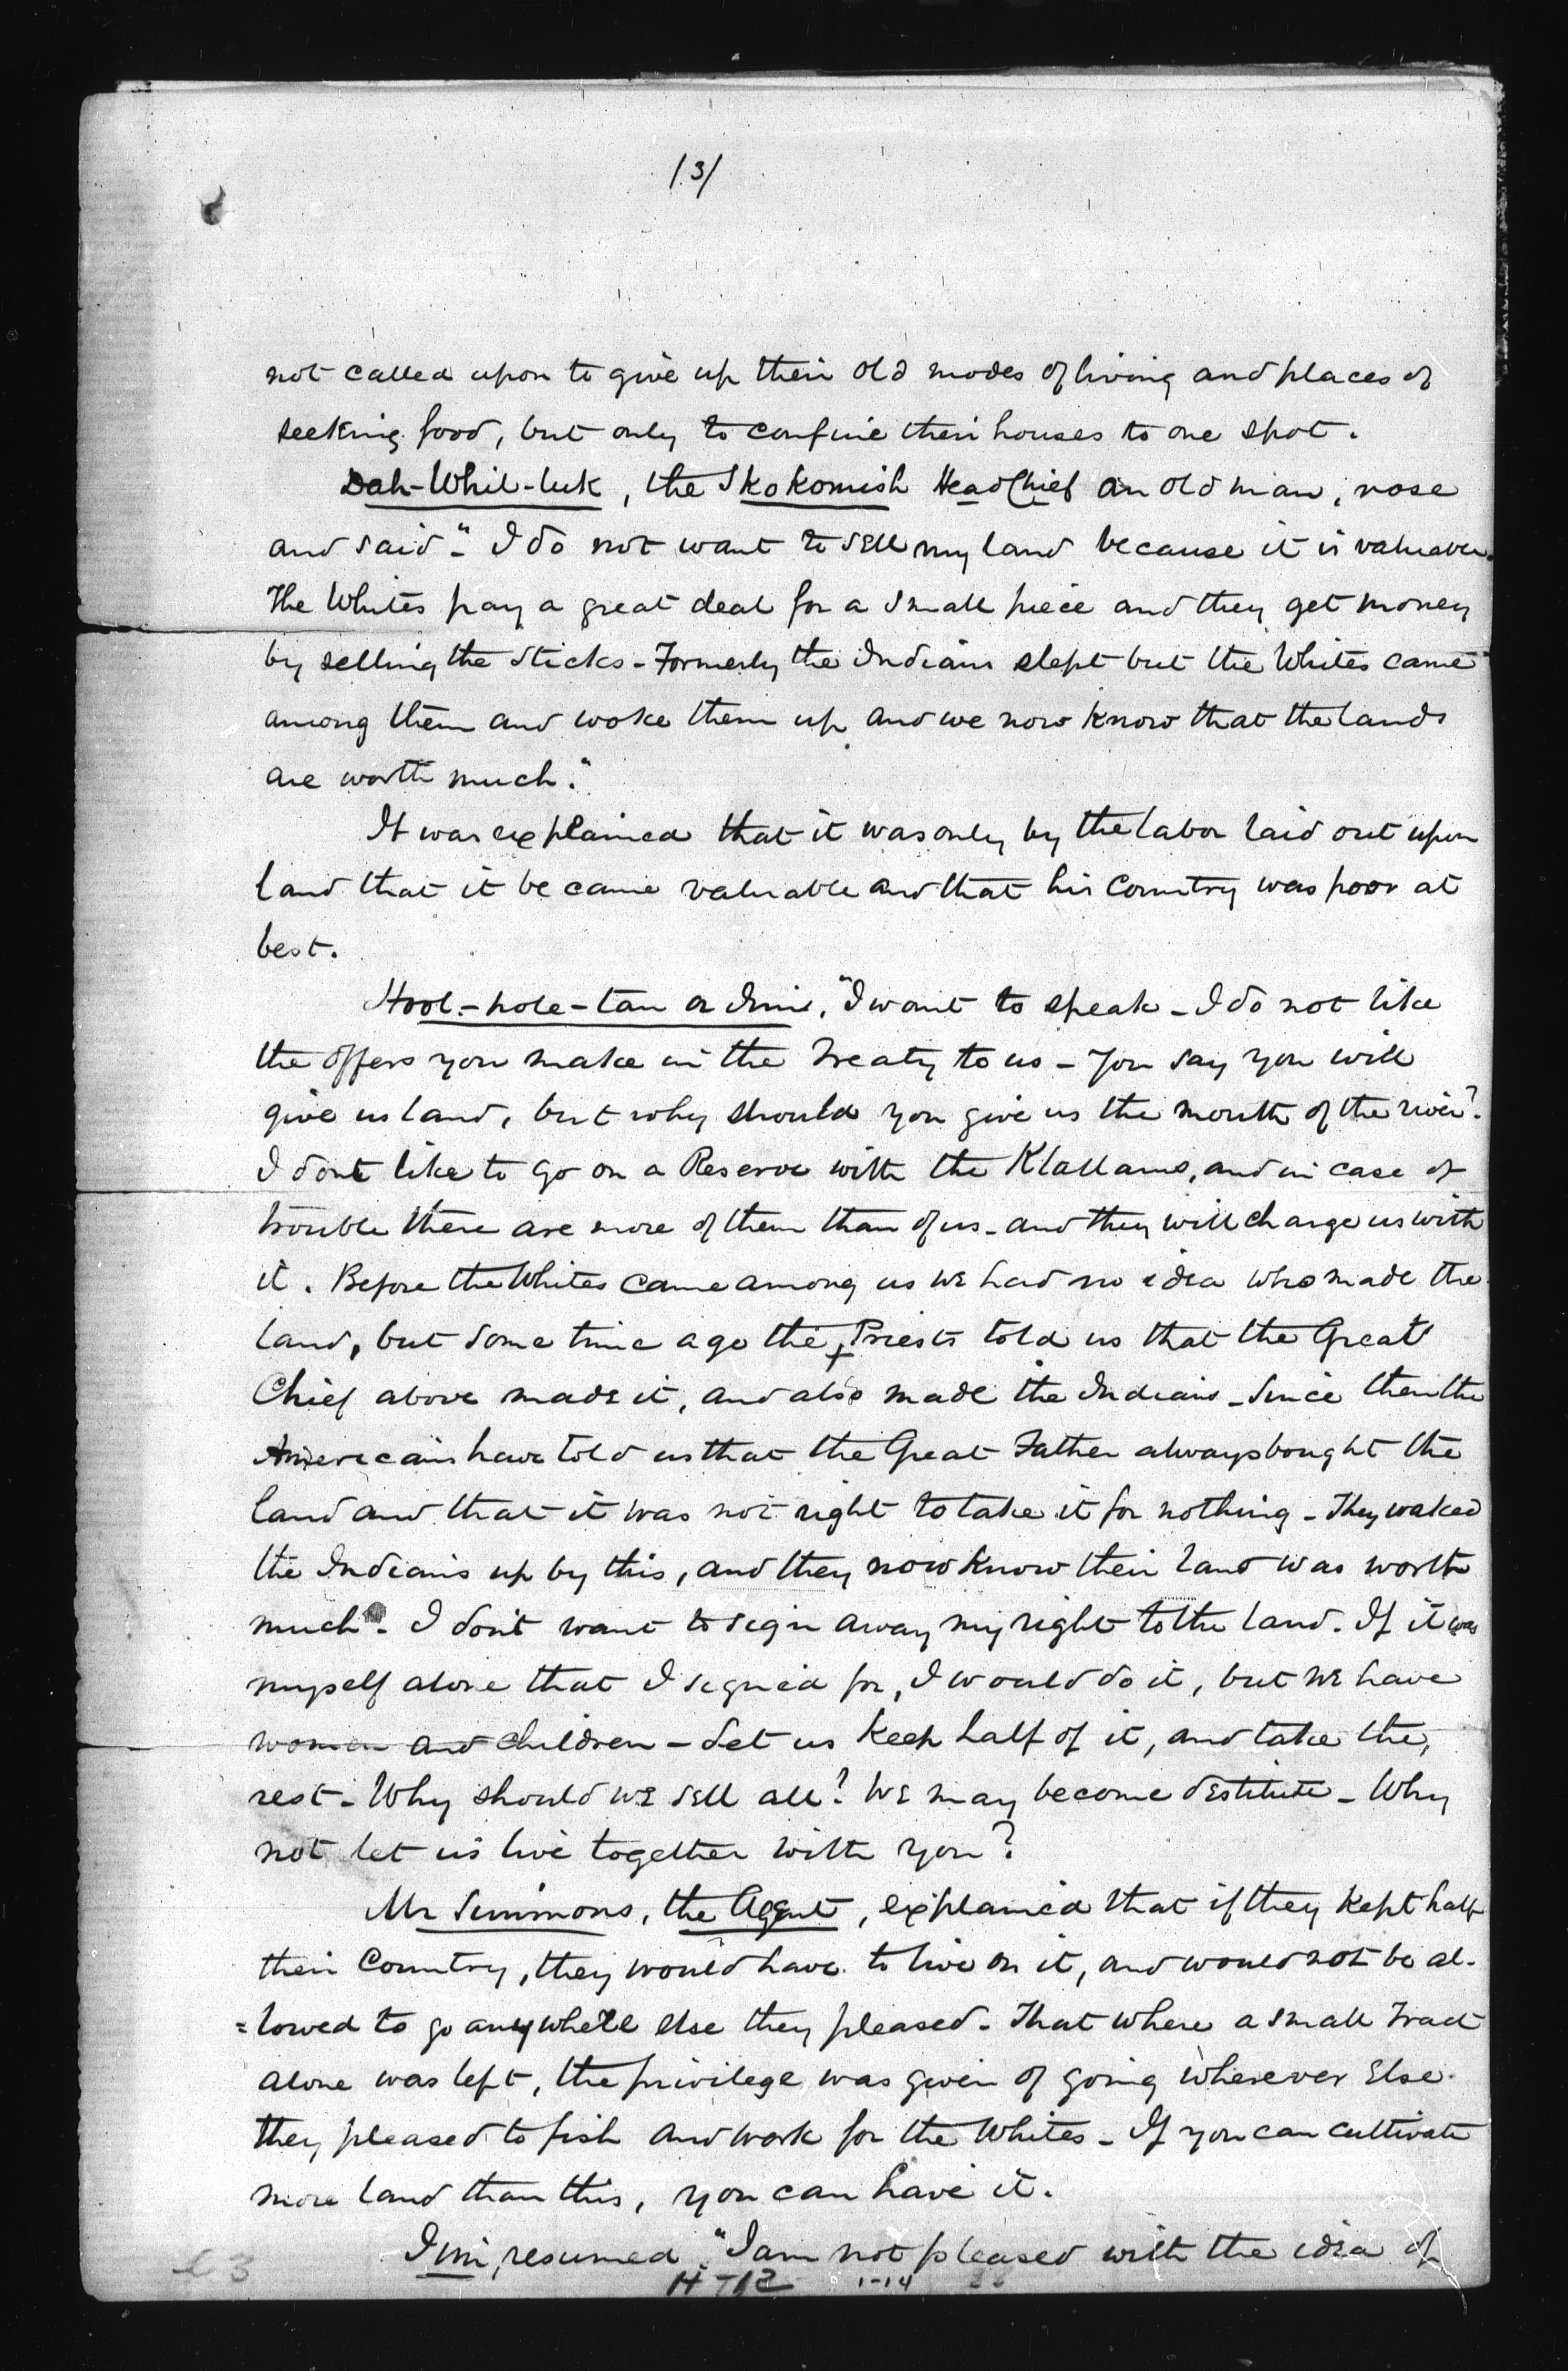 /3/
not called upon to give up their old modes of living and places of
seeking food, but only to confine their houses to one spot.
Dah-Whil-luk, the Skokomish Head Chief an old man, rose
and said. "I do not want to sell my land because it is valuable.
The Whites pay a great deal for a small piece and they get money
by selling the sticks - Formerly the Indians slept but the Whites came
among them and woke them up and we now know that the lands
are worth much."
It was explained that it was only by the labor laid out upon
land that it became valuable and that his Country was poor at
best.
Hool-hole-tan or Jim, "I want to speak - I do not like
the offers you make in the Treaty to us - You say you will
give us land, but why should you give us the mouth of the river?
I dont like to go on a Reserve with the Klallams, and in case of
trouble there are more of them than of us - and they will charge us with
it. Before the Whites came among us we had no idea who made the
land, but some time ago the Priests told us that the Great
Chief above made it, and also made the Indians - Since then the
Americans have told us that the Great Father always bought the
land and that it was not right to take it for nothing - They waked
the Indians up by this, and they now know their land was worth
much. I don't want to sign away my right to the land. If it was
myself alone that I signed for, I would do it, but we have
women and children - Let us keep half of it, and take the,
rest - Why should we sell all? We may become destitute - Why
not let us live together with you?
Mr Simmons, the Agent, explained that if they kept half
their Country, they would have to live on it, and would not be al-
=lowed to go anywhere else they pleased - That where a small Tract
alone was left, the privilege was given of going wherever else
they pleased to fish and work for the Whites - If you can cultivate
more land than this, you can have it.
Jim, resumed. "I am not pleased with the idea of
H-12 1-14